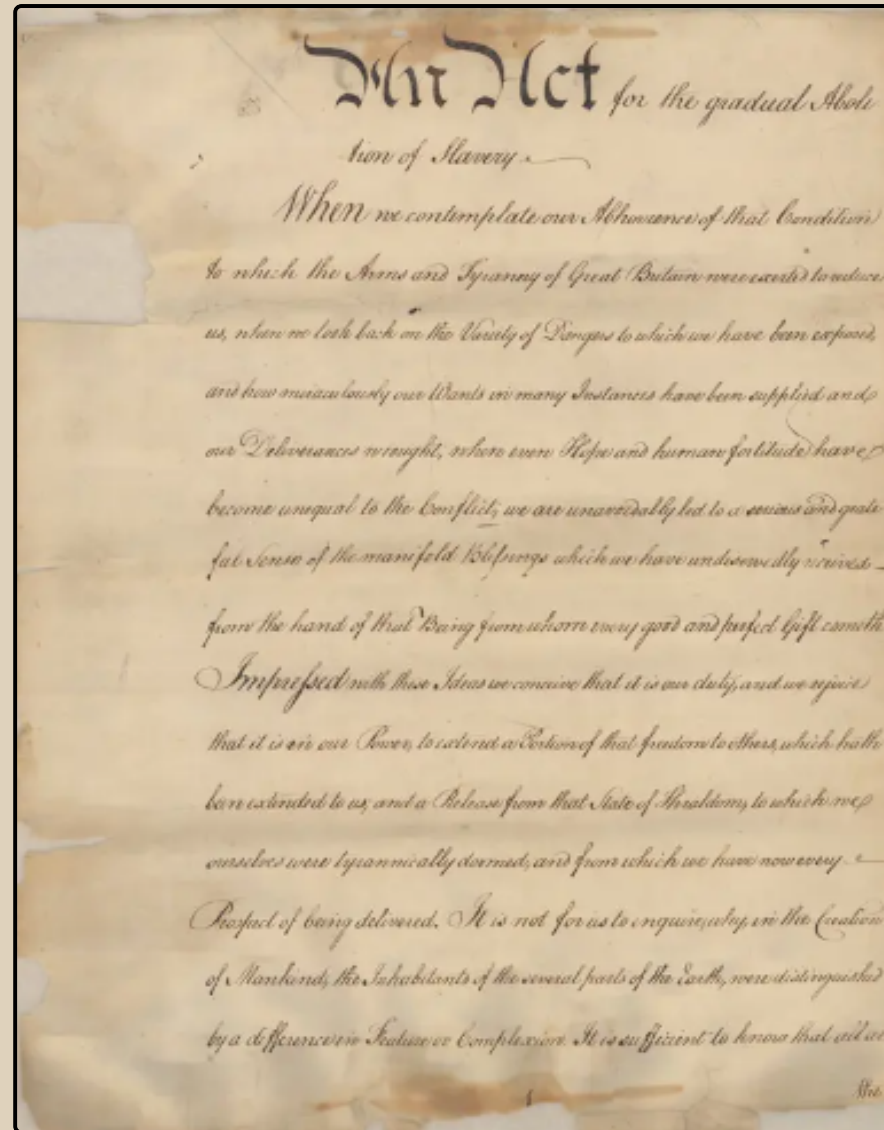 An Act for the gradual Aboli
tion of Slavery
When we contemplate our Abhorence of that Condition
to which the Arms and Tyranny of Great Britain were exerted to reduce
us, when we look back on the Variety of Dangers to which we have been exposed,
and how miraculously our Wants in many Instances have been supplied and
our Deliverances wrought, when even Hope and human fortitude have
become unequal to the Conflict; we are unavoidably led to a serious and grate
ful Sense of the manifold Blessings which we have undeservedly received
from the hand of that Being from whom every good and perfect Gift cometh
Impressed with these Ideas we conceive that it is our duty, and we rejoice
that it is in our Power, to extend a Portion of that freedom to others, which hath
been extended to us, and a Release from that State of Thraldom, to which we
ourselves were tyrannically doomed, and from which we have now every
Prospect of being delivered. It is not for us to enquire, why, in the Creation
of Mankind, the Inhabitants of the several parts of the Earth, were distinguished
by a difference in Feature or Complexion. It is sufficient to know that all are
the